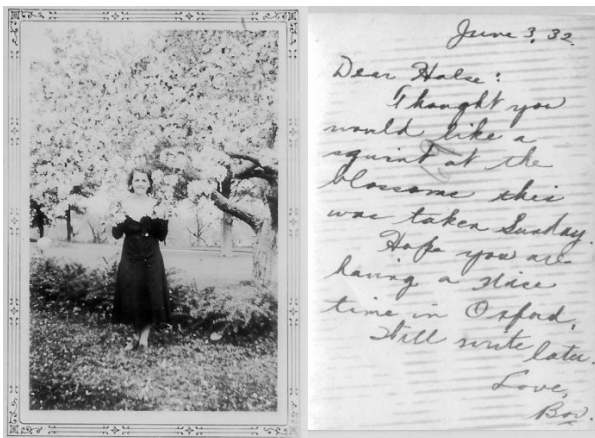 June 3, 32.
Dear Halse:
Thought you
would like a
squint at the
blossoms this
was taken Sunday.
Hope you are
having a nice
time in Oxford.
Will write later.
Love,
Bov.